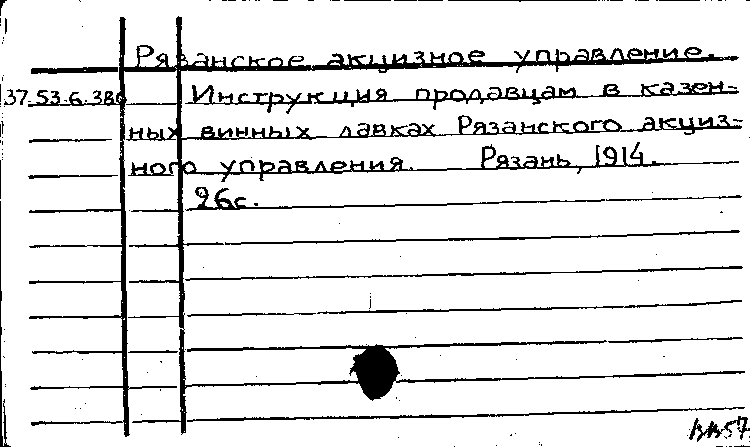 Рязанское акцизное управление.
37.53.6.380 Инструкция продавцам в казен-
ных винных лавках Рязанского акциз-
ного управления. Рязань, 1914.
26с.
ВВ57